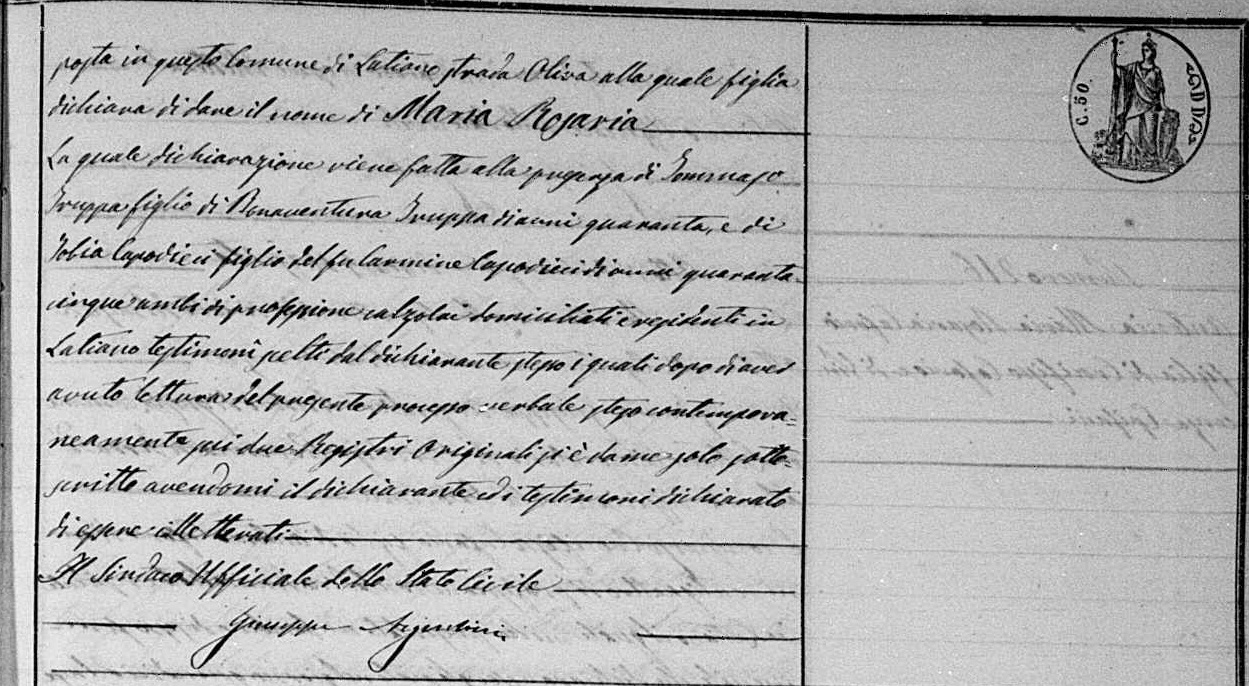 posta in questo Comune di Latiano strada Oliva alla quale figlia
dichiara di dare il nome di Maria Rosaria
La quale dichiarazione viene fatta alla presenza di Tommaso
Truppa figlio di Bonaventura Truppa di anni quaranta, e di
Tobia Capodieci figlio del fu Carmine Capodieci di anni quaranta
cinque ambi di professione calzolai domiciliati e residenti in
Latiano testimoni scelti dal dichiarante stesso i quali dopo di aver
avuto lettura del presente processo verbale steso contempora=
neamente sui due Registri Originali si è da me solo sotto=
scritto avendomi il dichiarante ed i testimoni dichiarato
di essere illetterati
Il Sindaco Uffiziale dello Stato Civile
Giuseppe
C. 50.
Numero 216
Maria Rosaria
figlia di Giuseppe